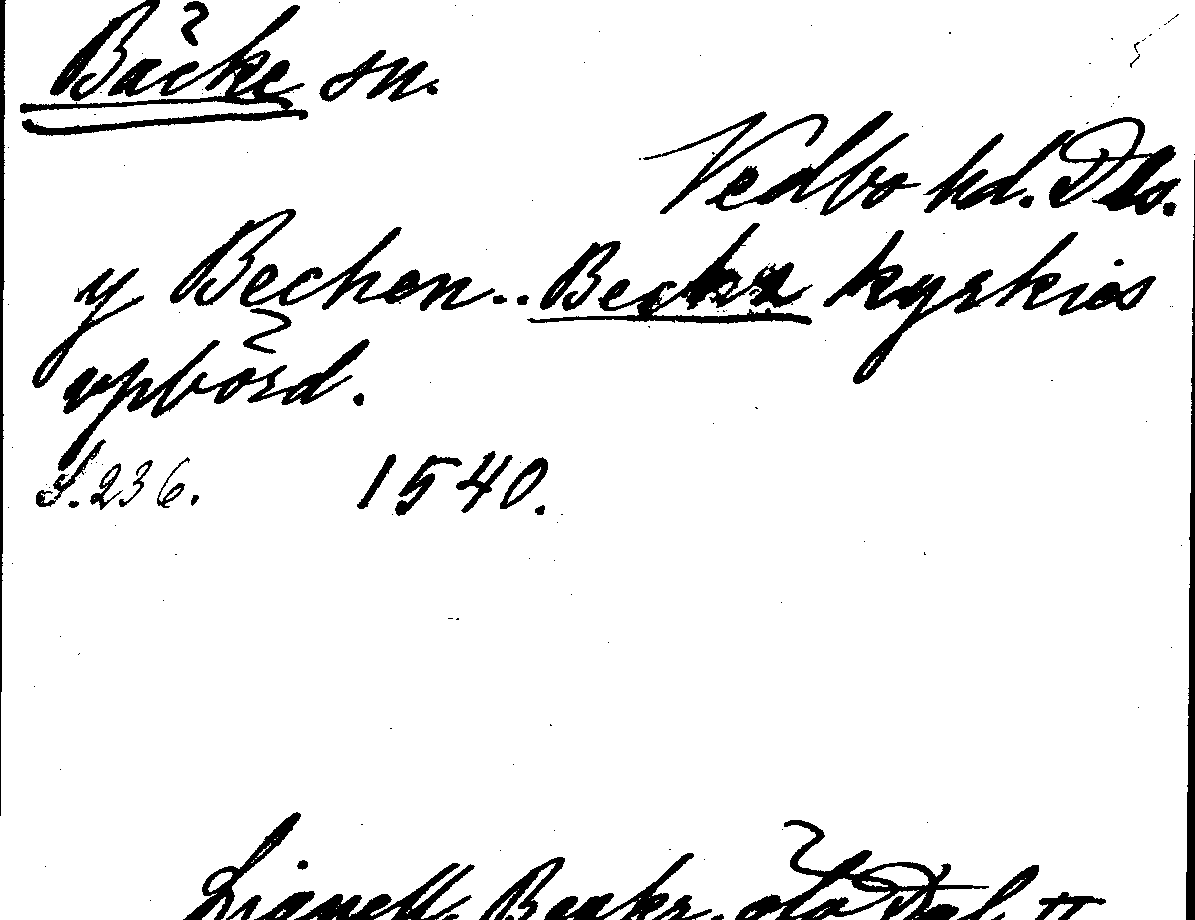 Bäcke sn.
Vedbo hd. Dls.
y Bechen.. Becka kyrkios
vpbörd.
S. 236. 1540.
Lignell, Beskr. öfv. Dal. II